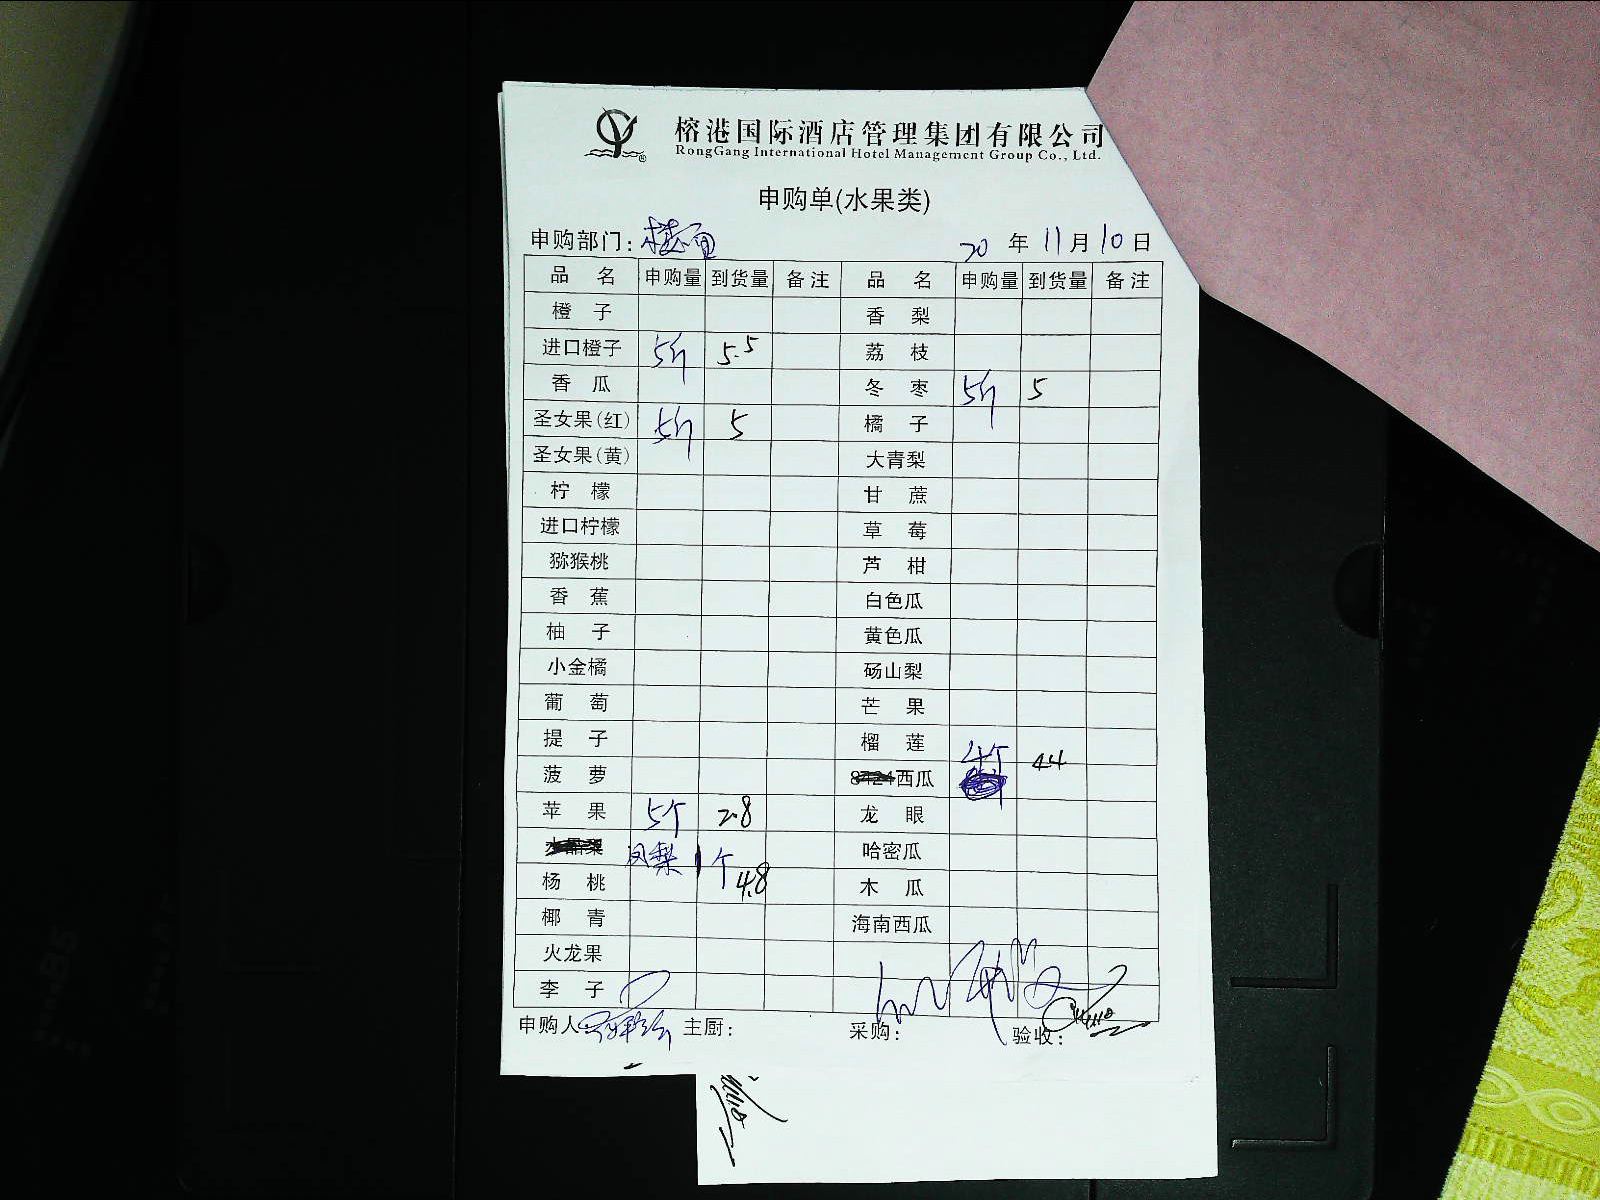 榕港国际酒店管理集团有限公司
RongGang International Hotel Management Group Co., Ltd.
申购单(水果类)
申购部门: 楼面 20 年 11 月 10 日
品 名 申购量 到货量 备注 品 名 申购量 到货量 备注
橙 子 香 梨
进口橙子 5斤 5.5 荔 枝
香 瓜 冬 枣 5斤 5
圣女果(红) 5斤 5 橘 子
圣女果(黄) 大青梨
柠 檬 甘 蔗
进口柠檬 草 莓
猕猴桃 芦 柑
香 蕉 白色瓜
柚 子 黄色瓜
小金橘 砀山梨
葡 萄 芒 果
提 子 榴 莲
菠 萝 8424西瓜 4个 44
苹 果 5个 2.8 龙 眼
水晶梨 凤梨 1个 4.8 哈密瓜
杨 桃 木 瓜
椰 青 海南西瓜
火龙果
李 子
申购人 主厨: 采购: 验收: